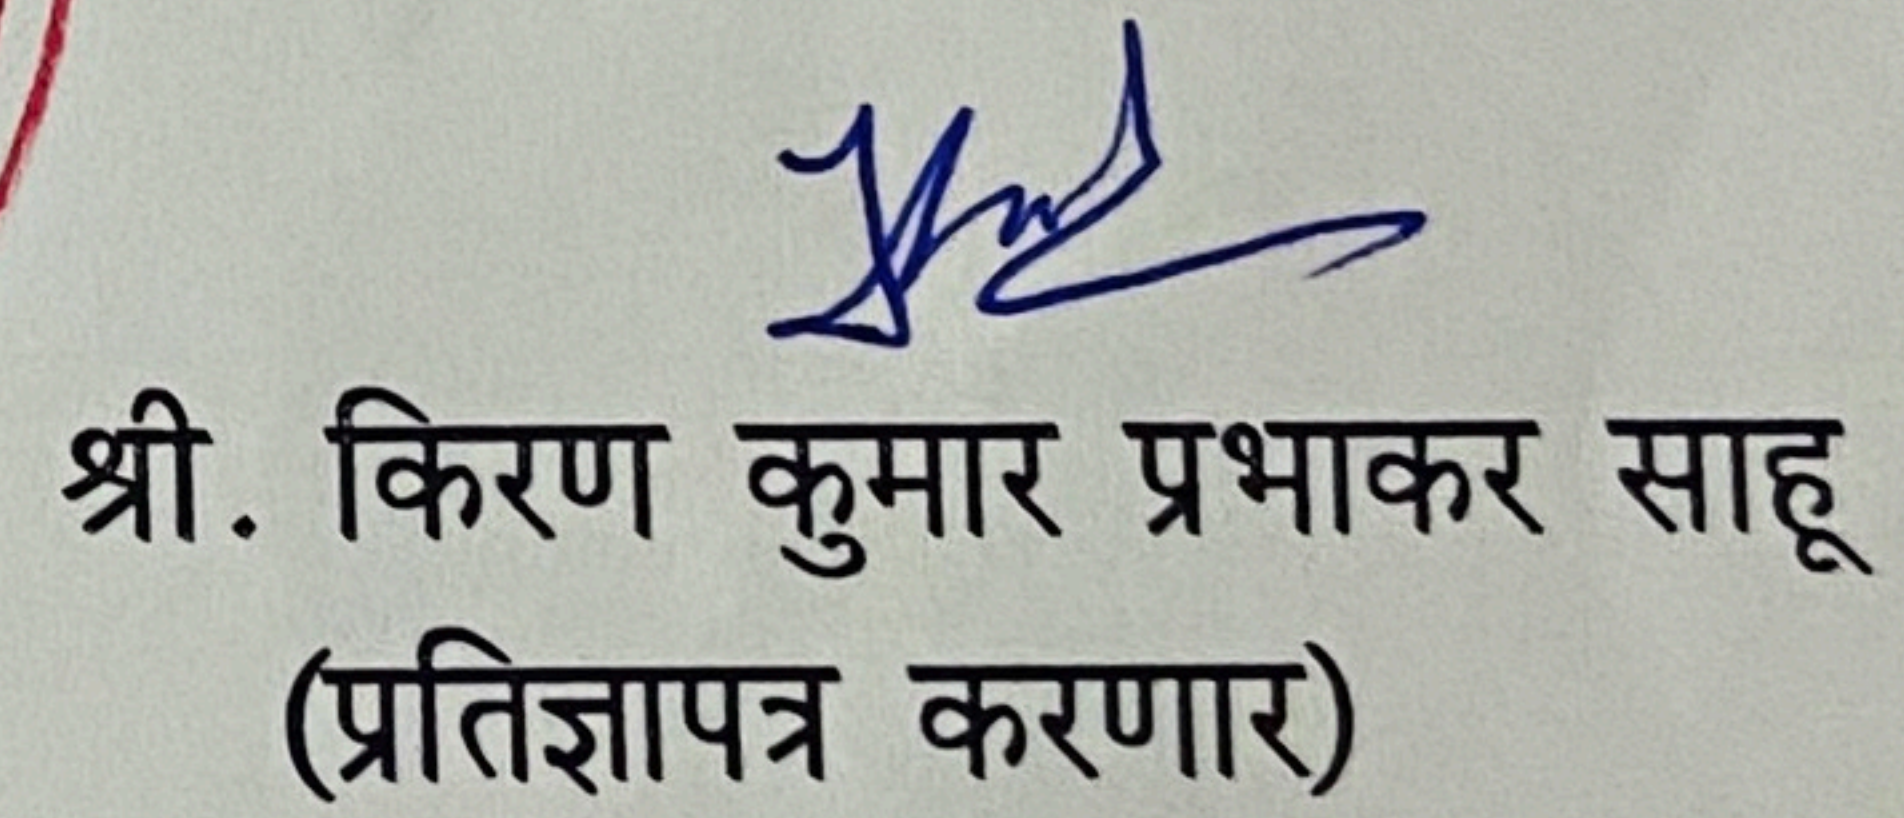 श्री. किरण कुमार प्रभाकर साहू
(प्रतिज्ञापत्र करणार)